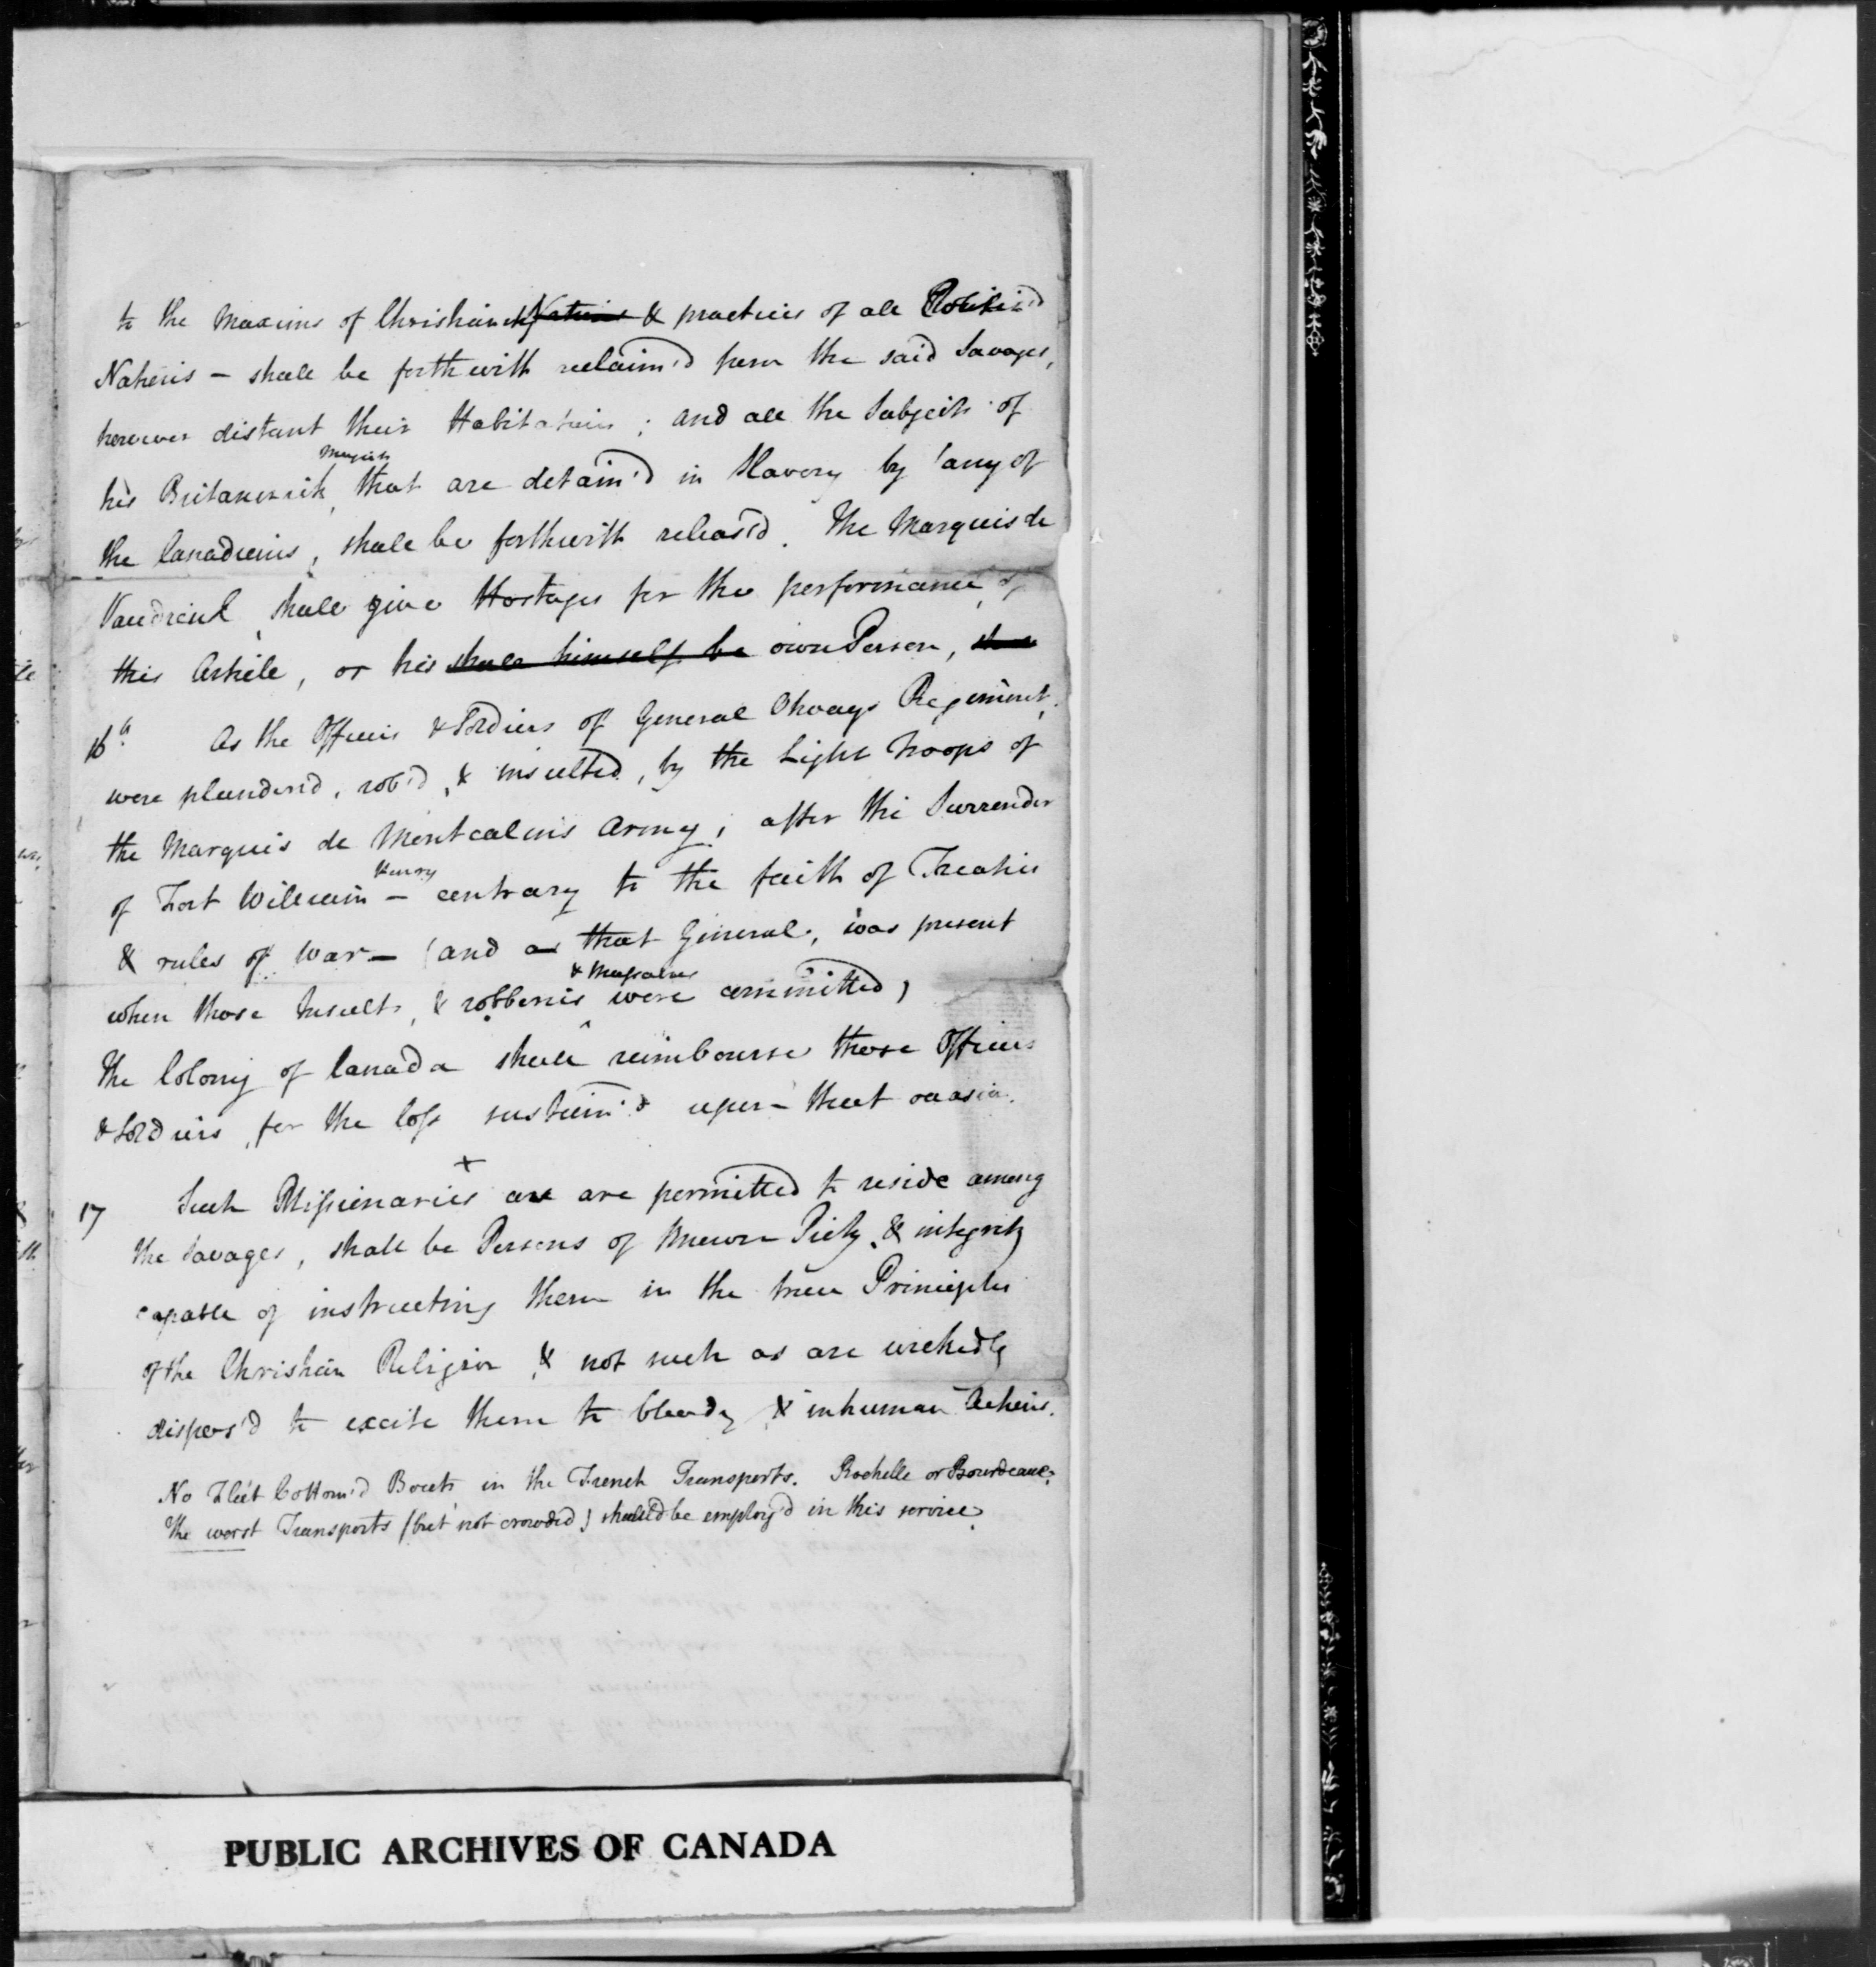 to the Maxims of Christianity Nations & practices of all Civiliz'd
Nations – shall be forthwith reclaim'd from the said Savages,
however distant their Habitations; and all the Subjects of
his Britannick Majesty that are detain'd in Slavery by any of
the Canadians, shall be forthwith releas'd. The Marquis de
Vaudreuil shall give Hostages for the performance of
this Article, or his shall himself be own Person,
16th As the Officers & Soldiers of General Ohways Regiment,
were plunder'd, rob'd, & insulted, by the Light Troops of
the Marquis de Montcalm's Army; after the Surrender
of Fort William Henry – contrary to the faith of Treaties
& rules of War – (and as that General, was present
when those Insults, & robberies & Massacres were committed)
The Colony of Canada shall reimbourse those Officers
& Soldiers, for the loss sustain'd upon that occasion.
17 Such Missionaries as are permitted to reside among
the Savages, shall be Persons of known Piety, & integrity
capable of instructing them in the true Principles
of the Christian Religion, & not such as are wickedly
dispos'd to excite them to bloody & inhuman Actions.
No Flat bottom'd Boats in the French Transports. Rochelle or Bourdeaux.
The worst Transports (but not crowded) should be employ'd in this service.
PUBLIC ARCHIVES OF CANADA